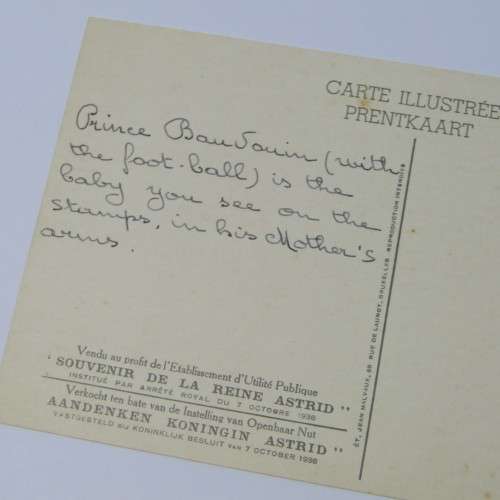 CARTE ILLUSTRÉE
PRENTKAART
Prince Baudouin (with
the foot-ball) is the
baby you see on the
stamps, in his Mother's
arms.
Vendu au profit de l'Etablissement d'Utilité Publique
" SOUVENIR DE LA REINE ASTRID "
INSTITUÉ PAR ARRÊTÉ ROYAL DU 7 OCTOBRE 1936
Verkocht ten bate van de Instelling van Openbaar Nut
AANDENKEN KONINGIN ASTRID "
VASTGESTELD BIJ KONINKLIJK BESLUIT VAN 7 OCTOBER 1936
ÉT. JEAN MALVAUX, 69 RUE DE LAUNOY, BRUXELLES REPRODUCTION INTERDITE